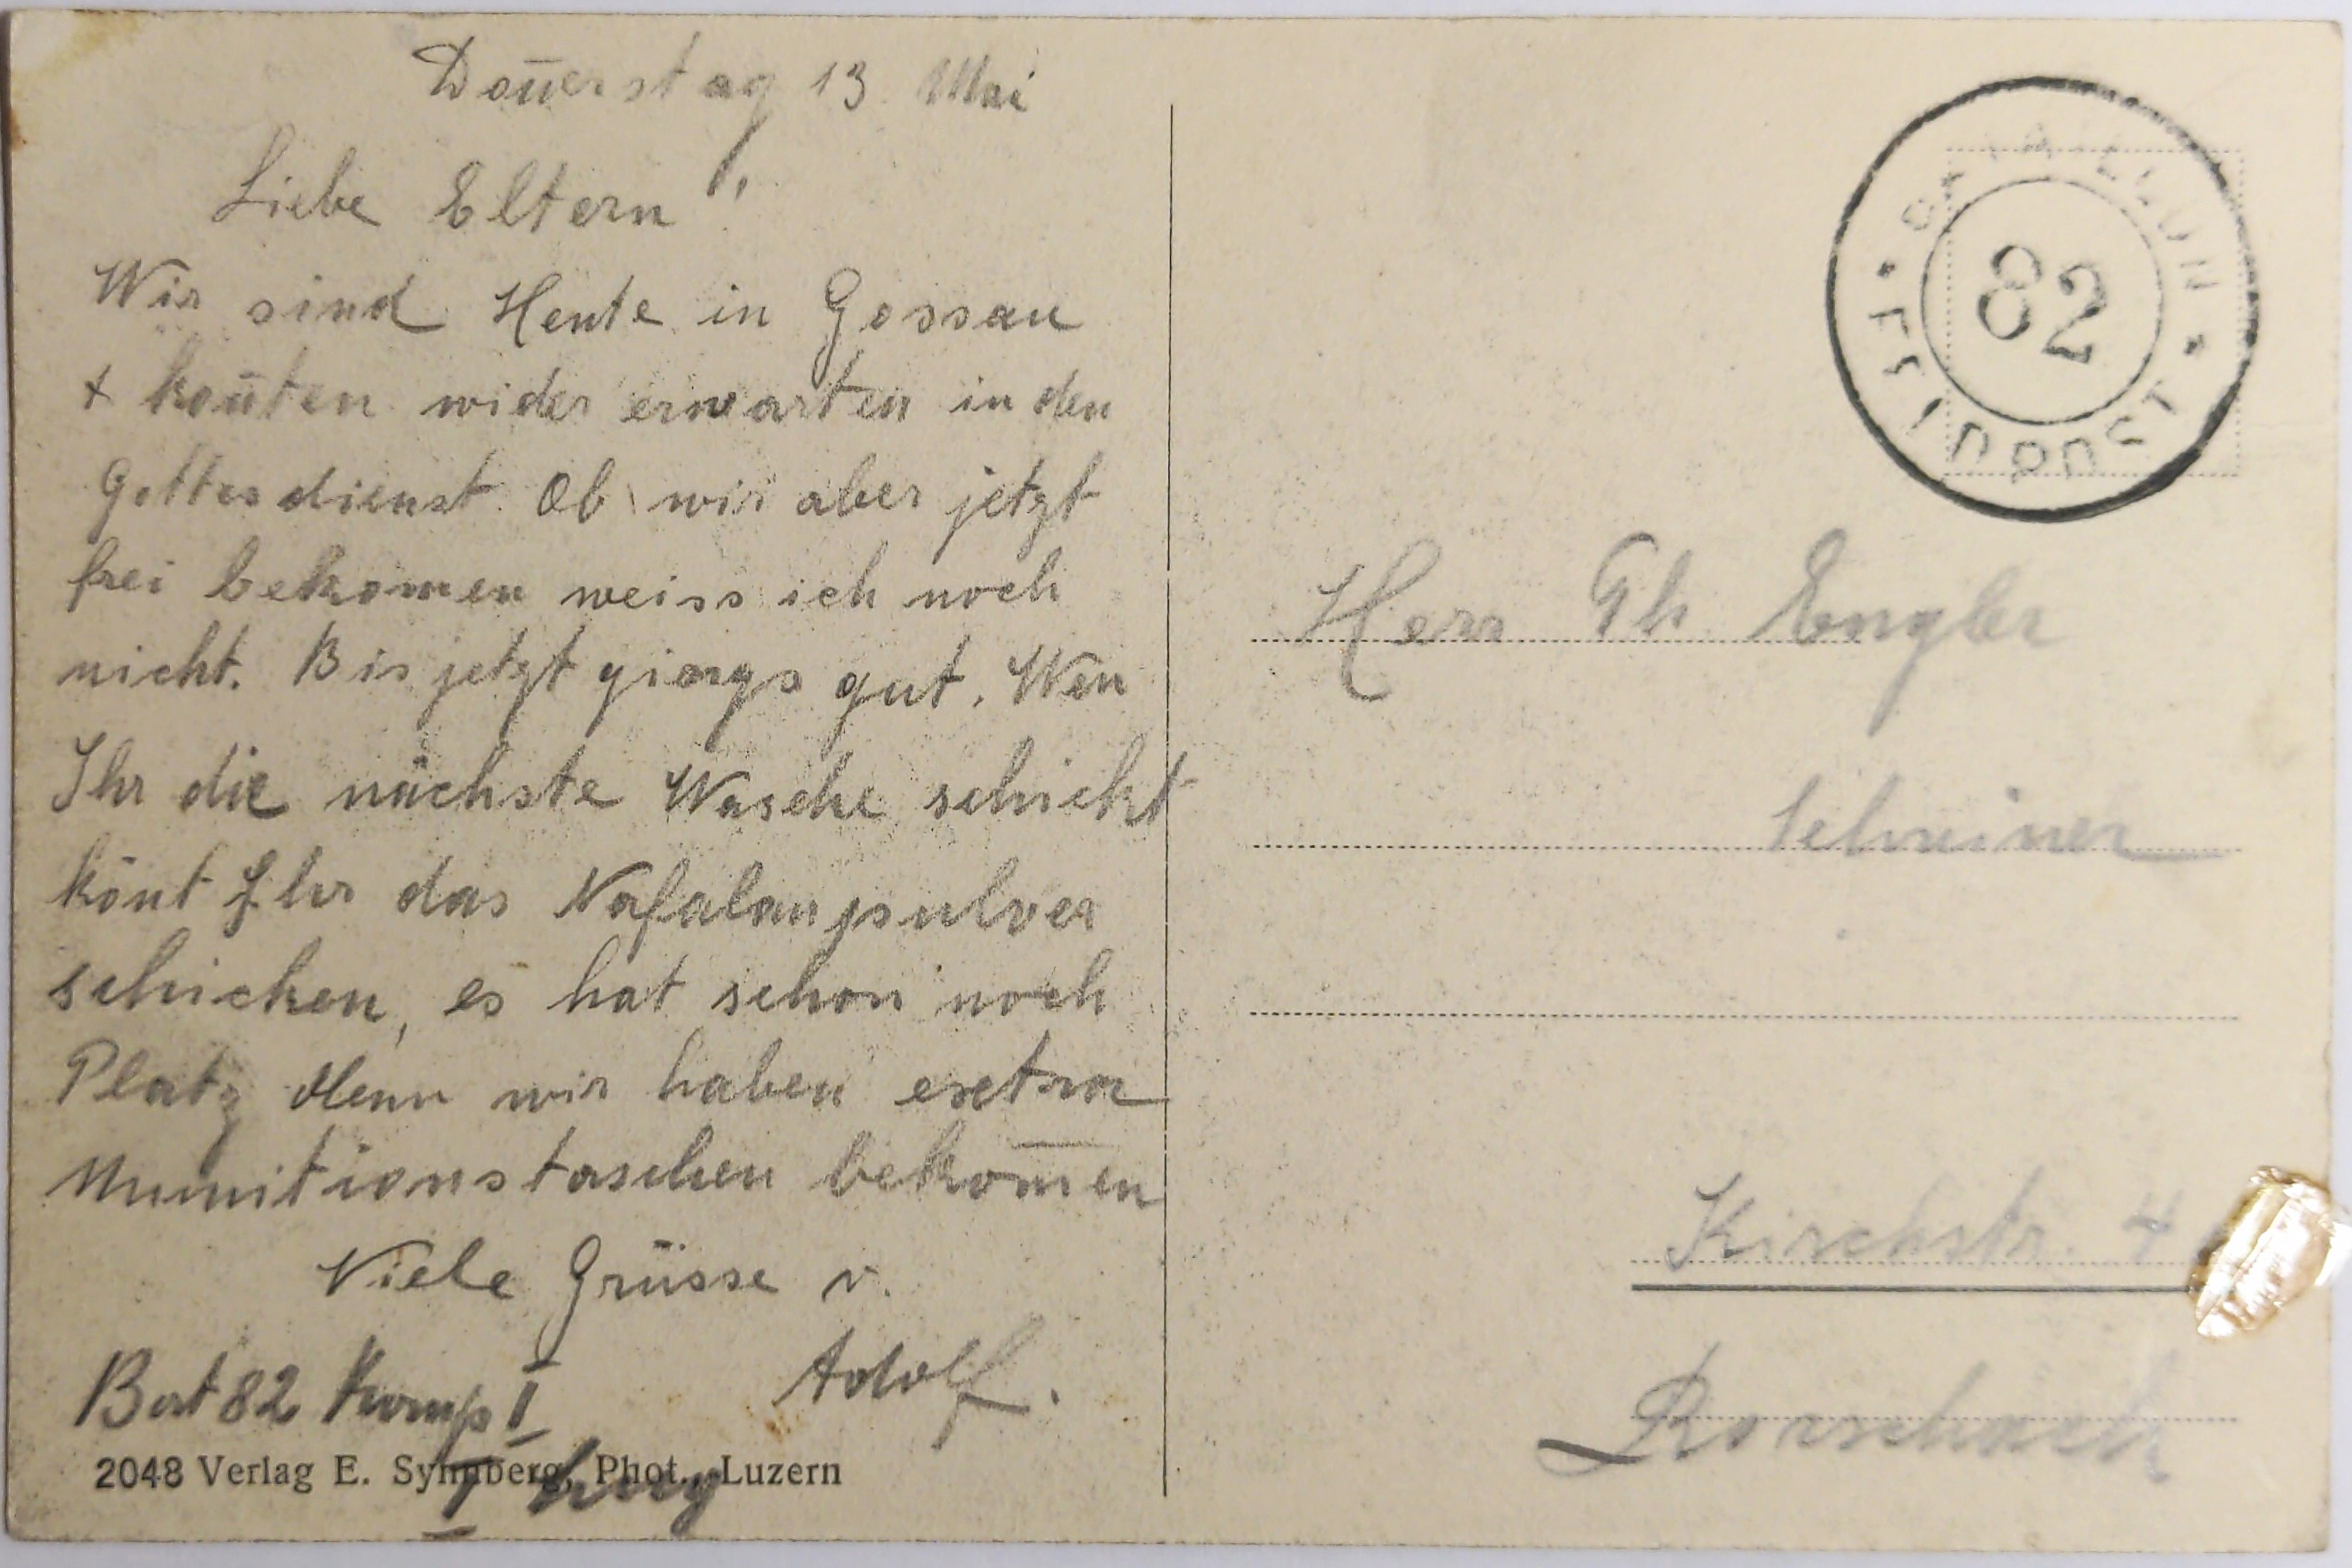 Don̄erstag 13 Mai
Liebe Eltern!
Wir sind Heute in Gossau
+ kon̄ten wider erwarten in den
Gottesdienst. Ob wir aber jetzt
frei bekomen weiss ich noch
nicht. Bis jetzt giengs gut. Wen
Ihr die nächste Wasche schickt
könt Ihr das Nafalanpulver
schicken, es hat schon noch
Platz denn wir haben extra
Munitionstaschen bekom̄en
Viele Grüsse v.
Adolf.
Bat 82 Komp I
I
2048 Verlag E. Synnberg, Phot., Luzern
BATAILLON
82
FELDPOST
Herr Gh. Engler
Schreiner
Kirchstr. 4
Rorschach